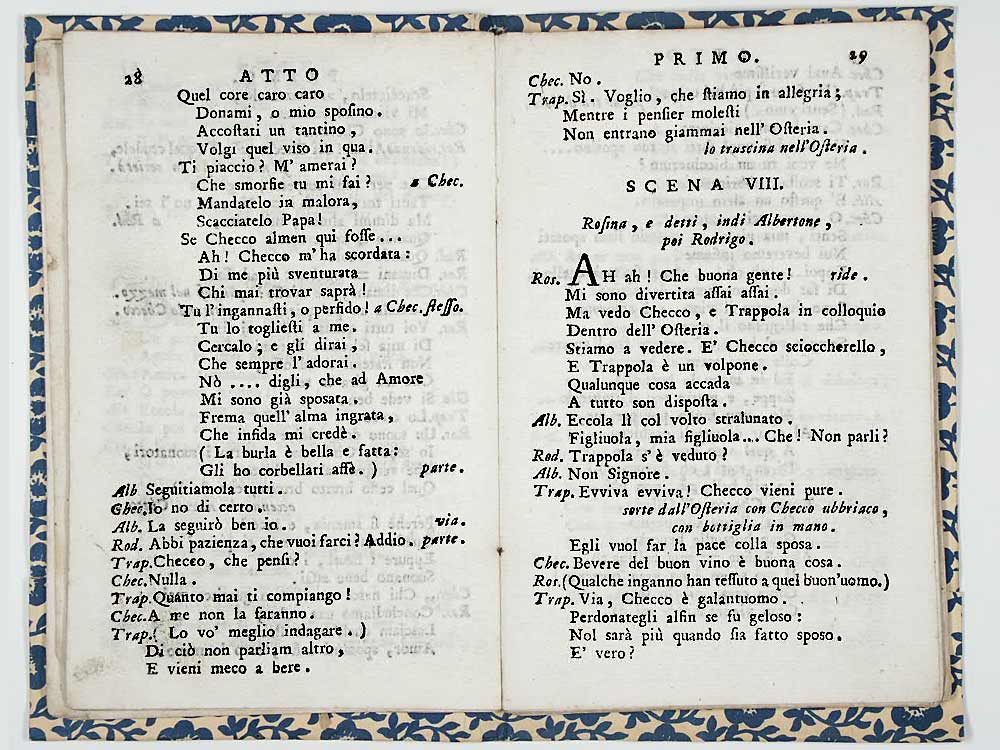 28 ATTO
Quel core caro caro
Donami, o mio sposino.
Accostati un tantino,
Volgi quel viso in qua.
Ti piaccio? M' amerai?
Che smorfie tu mi fai? a Chec.
Mandatelo in malora,
Scacciatelo Papa!
Se Checco almen qui fosse...
Ah! Checco m'ha scordata:
Di me più sventurata
Chi mai trovar saprà!
Tu l'ingannasti, o perfido! a Chec. stesso.
Tu lo togliesti a me.
Cercalo; e gli dirai,
Che sempre l'adorai.
Nò .... digli, che ad Amore
Mi sono già sposata.
Frema quell' alma ingrata,
Che infida mi credè.
( La burla è bella e fatta:
Gli ho corbellati affè. ) parte.
Alb Seguitiamola tutti.
Chec. Io no di certo.
Alb. La seguirò ben io. via.
Rod. Abbi pazienza, che vuoi farci? Addio. parte.
Trap. Checco, che pensi?
Chec. Nulla.
Trap. Quanto mai ti compiango!
Chec. A me non la faranno.
Trap. ( Lo vo' meglio indagare. )
Di ciò non parliam altro,
E vieni meco a bere.
PRIMO. 29
Chec. No.
Trap. Sì. Voglio, che stiamo in allegria;
Mentre i pensier molesti
Non entrano giammai nell' Osteria.
lo trascina nell'Osteria.
SCENA VIII.
Rosina, e detti, indi Albertone,
poi Rodrigo.
Ros. AH ah! Che buona gente! ride.
Mi sono divertita assai assai.
Ma vedo Checco, e Trappola in colloquio
Dentro dell' Osteria.
Stiamo a vedere. E' Checco scioccherello,
E Trappola è un volpone.
Qualunque cosa accada
A tutto son disposta.
Alb. Eccola lì col volto stralunato.
Figliuola, mia figliuola... Che! Non parli?
Rod. Trappola s'è veduto?
Alb. Non Signore.
Trap. Evviva evviva! Checco vieni pure.
sorte dall'Osteria con Checco ubbriaco,
con bottiglia in mano.
Egli vuol far la pace colla sposa.
Chec. Bevere del buon vino è buona cosa.
Ros. (Qualche inganno han tessuto a quel buon'uomo.)
Trap. Via, Checco è galantuomo.
Perdonategli alfin se fu geloso:
Nol sarà più quando sia fatto sposo.
E' vero?